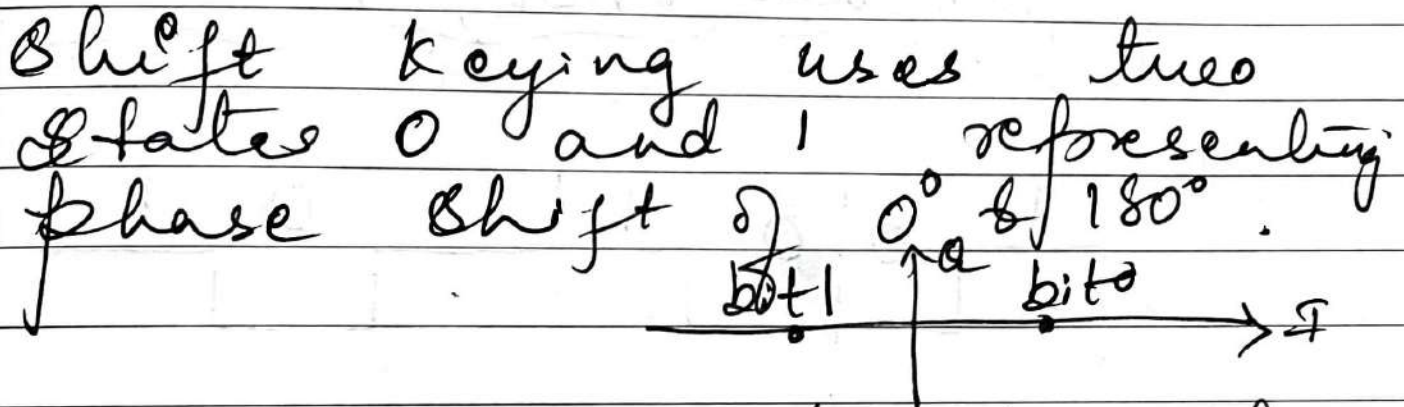 Shift Keying uses two
States 0 and 1 representing
phase shift of 0° & 180°.
Q
bit1 bit0
I